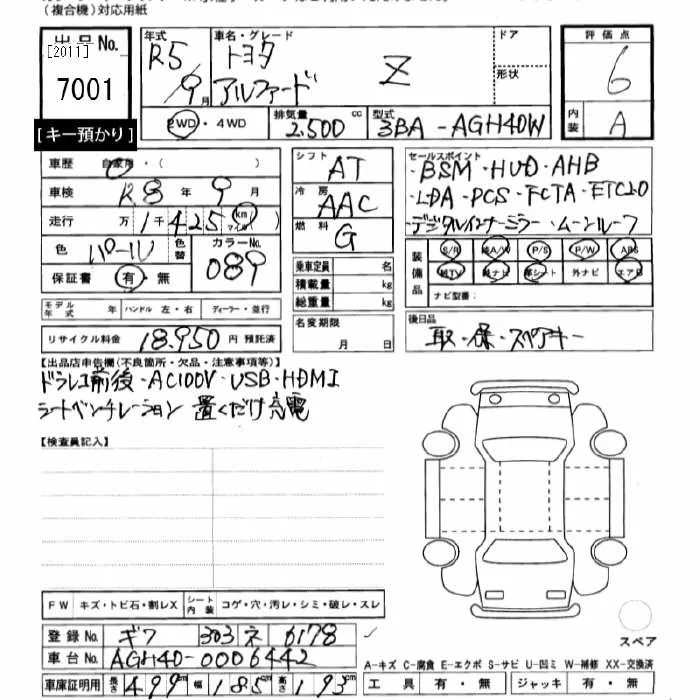 (複合機)対応用紙
出品No.
[2011]
7001
[キー預かり]
年式 R5/9月
車名・グレード トヨタ アルファード Z
ドア
形状
評価点 6
内装 A
2WD・4WD
排気量 2,500 cc
型式 3BA-AGH40W
車歴 自家用・( )
車検 R8年9月
走行 万1千425 km マイル
色 パール 色替 カラーNo. 089
保証書 有・無
モデル年式 年 ハンドル 左・右 ディーラー・並行
リサイクル料金 18,950 円 預託済
シフト AT
冷房 AAC
燃料 G
乗車定員 名
積載量 kg
総重量 kg
名変期限
月 日
セールスポイント
・BSM・HUD・AHB
・LDA・PCS・FCTA・ETC2.0
・デジタルインナーミラー・ムーンルーフ
装備品 S/R 純A/W P/S P/W ABS
純TV 純ナビ 革シート 外ナビ エアB
ナビ型番:
後日品
取・保・スペアキー
【出品店申告欄(不良箇所・欠品・注意事項等)】
ドラレコ前後・AC100V・USB・HDMI
シートベンチレーション 置くだけ充電
【検査員記入】
FW キズ・トビ石・割レX シート内装 コゲ・穴・汚レ・シミ・破レ・スレ
登録No. ギフ 303 ネ 6178
車台No. AGH40-0006442
車庫証明用 長さ 499 幅 185 高さ 193 cm
スペア
A-キズ C-腐食 E-エクボ S-サビ U-凹ミ W-補修 XX-交換済
工具 有・無 ジャッキ 有・無